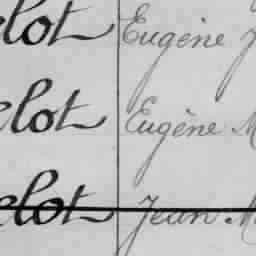 elot Eugène J
elot Eugène M
elot Jean M